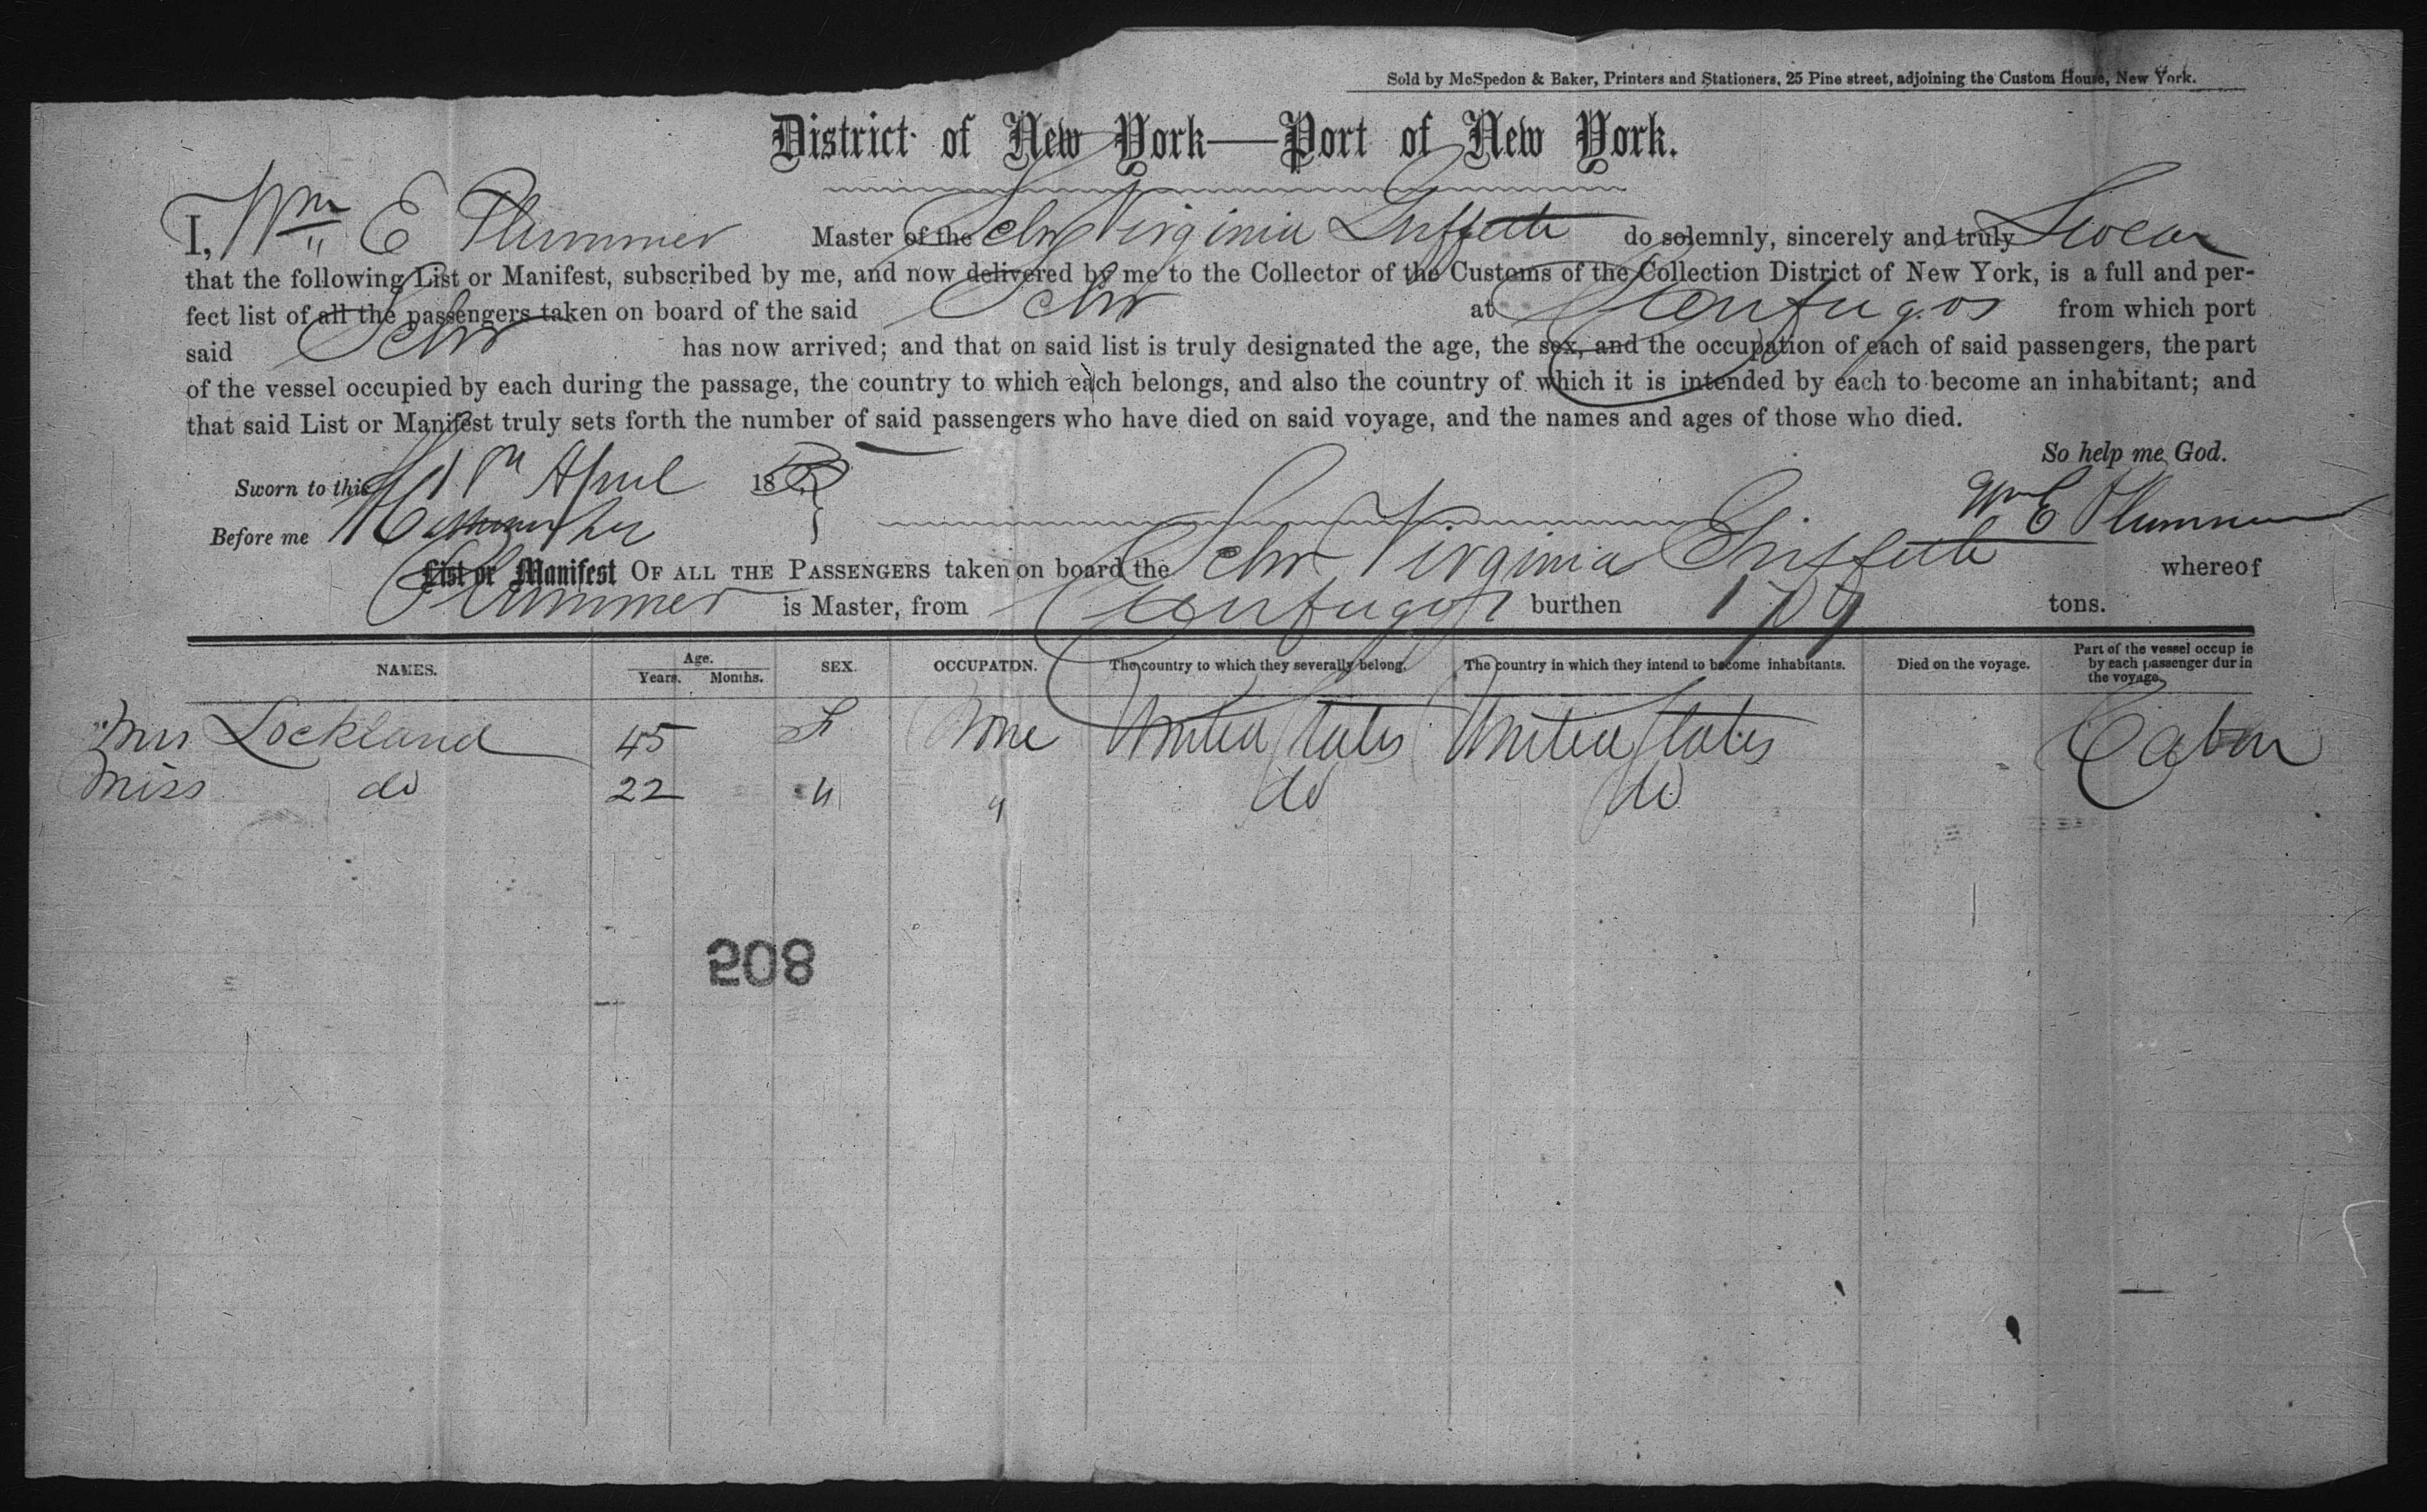 Sold by McSpedon & Baker, Printers and Stationers, 25 Pine street, adjoining the Custom House, New York.
District of New York—Port of New York.
I, Wm E Plummer Master of the Schr Virginia Griffeth do solemnly, sincerely and truly Swear
that the following List or Manifest, subscribed by me, and now delivered by me to the Collector of the Customs of the Collection District of New York, is a full and per-
fect list of all the passengers taken on board of the said Schr at Cenfugos from which port
said Schr has now arrived; and that on said list is truly designated the age, the sex, and the occupation of each of said passengers, the part
of the vessel occupied by each during the passage, the country to which each belongs, and also the country of which it is intended by each to become an inhabitant; and
that said List or Manifest truly sets forth the number of said passengers who have died on said voyage, and the names and ages of those who died.
So help me God.
Sworn to this April 18
Wm E Plummer
Before me
List or Manifest OF ALL THE PASSENGERS taken on board the Schr Virginia Griffeth whereof
Plummer is Master, from Cenfugos burthen tons.
NAMES. Age. Years. Months. SEX. OCCUPATON. The country to which they severally belong. The country in which they intend to become inhabitants. Died on the voyage. Part of the vessel occup ie by each passenger dur in the voyage.
Mrs Lockland 45 None United States United States Cabin
Miss do 22 " " do do
508